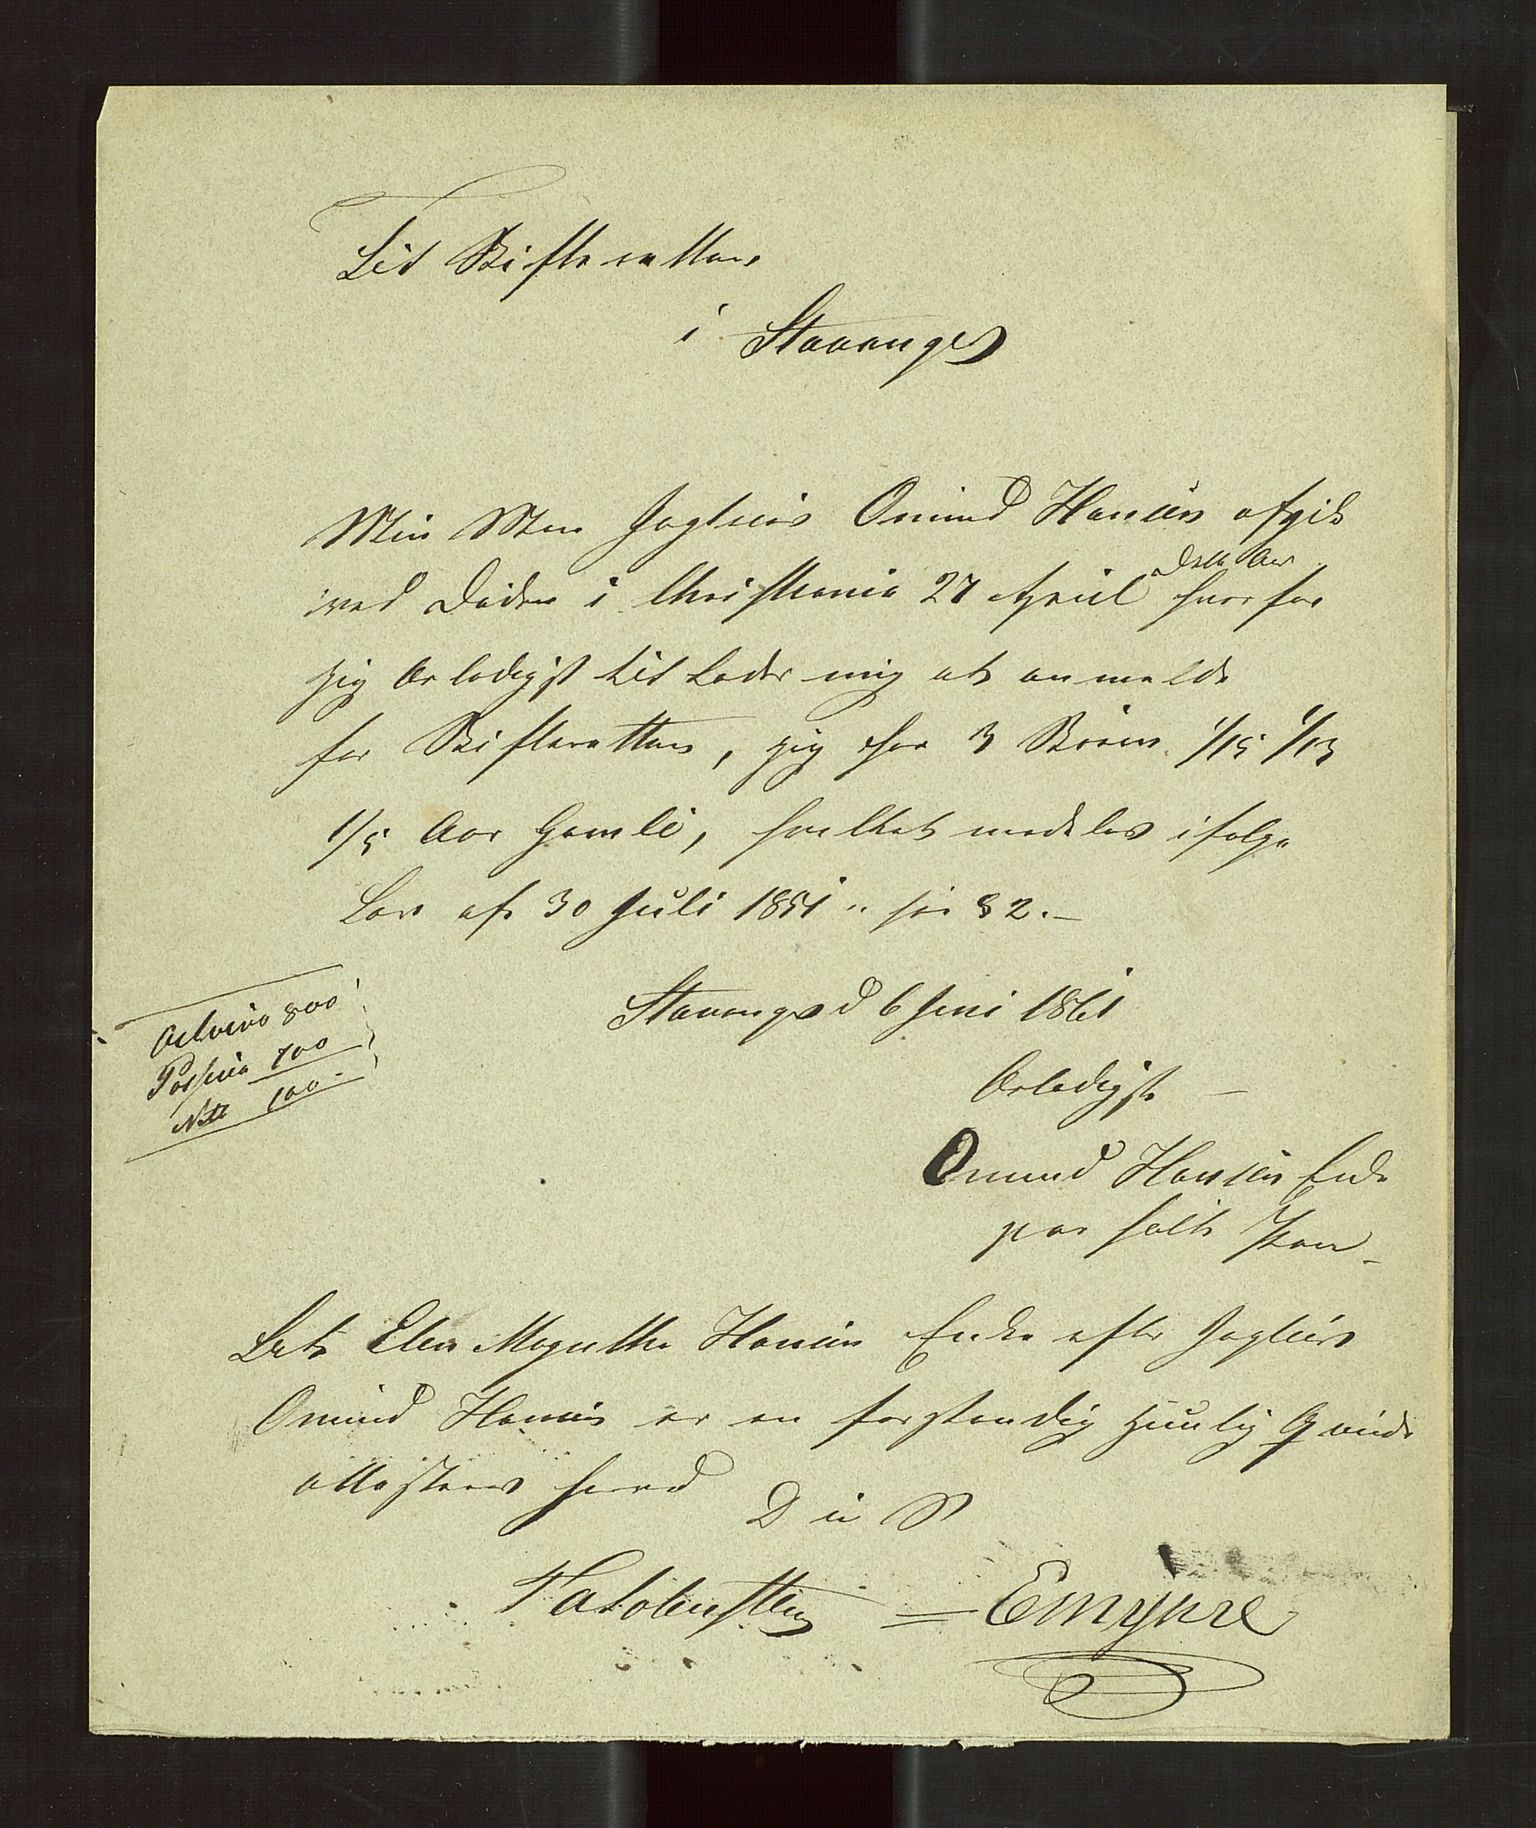 Til Skifteretten
i Stavanger
Min Man Jagtskis Omund Hansen afgik
ved Døden i Christiania 27 April dette Aar hvorfor
jeg Ærbødigst tillader mig at anmelde
for Skifteretten, jeg har 3 Børn 1/15 1/13
1/5 Aar Gamle, hvilket meddeles ifølge
Lov af 30 Juli 1851 § 82.
Stavanger d 6 Juni 1861
Ærbødigst
Omund Hansens Enke
paaholdt Pen
Activa 800
Passiva 700
Net 100
At Elen Magnthe Hansen Enke efter
Omund Hansen er en forstandig huuslig Qvinde
attesteres herved
D u S
E Myhre